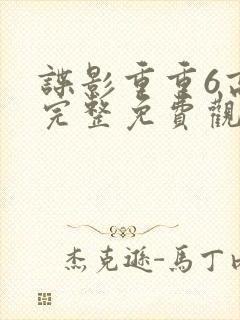 諜影重重6高
完整免費觀
杰克遜-馬丁內